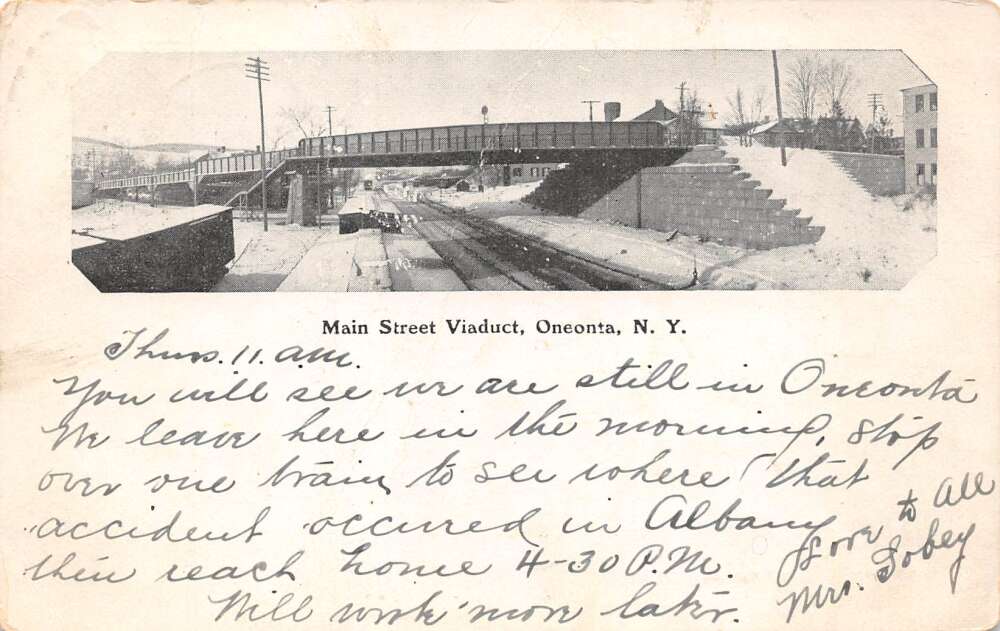 Main Street Viaduct, Oneonta, N. Y.
Thurs. 11. a.m.
You will see we are still in Oneonta
We leave here in the morning, stop
over one train, to see where that
accident occured in Albany
then reach home 4-30 P.M.
Will work more later.
Love to All
Mrs. Sobey